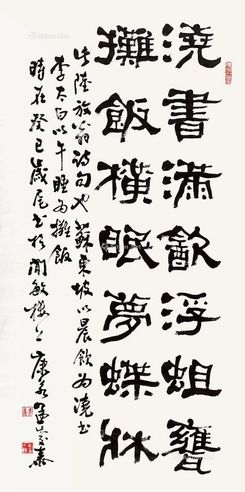 澆書滿歠浮蛆甕
攤飯橫眠夢蝶牀
此陸放翁詩句也蘇東坡以晨飲為澆書
李太白以午睡為攤飯
時在癸巳歲尾書於聞敏樓上康